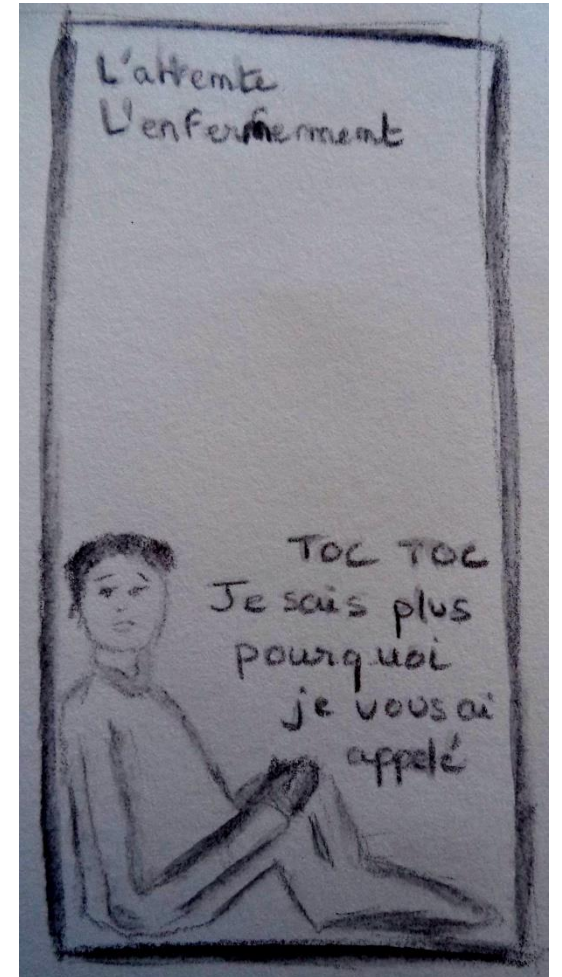 L'attente
L'enfermement
TOC TOC
Je sais plus
pourquoi
je vous ai
appelé